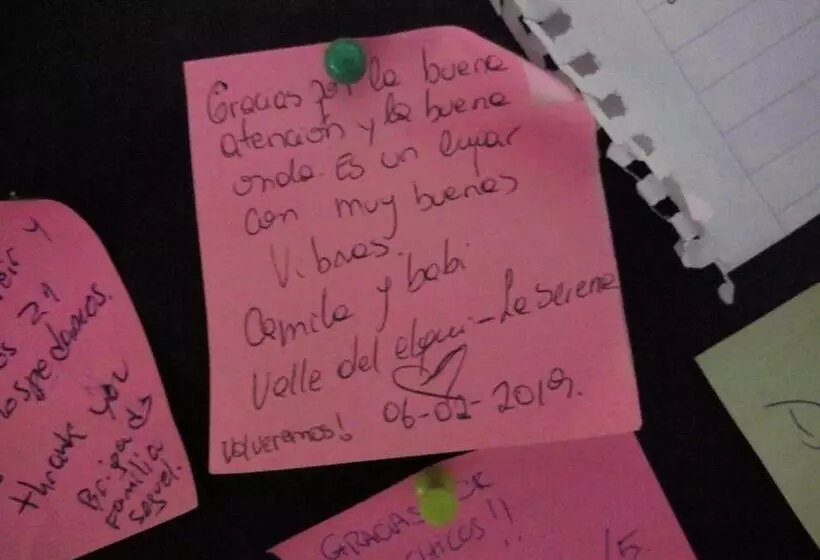 Gracias por la buena
atención y la buena
onda. Es un lugar
con muy buenas
Vibras.
Camila y babi
Valle del elqui - La Serena
06-02-2019.
Volveremos!
y
21
hospedarnos.
thank you
Familia
GRACIAS
CHICOS!!
/5